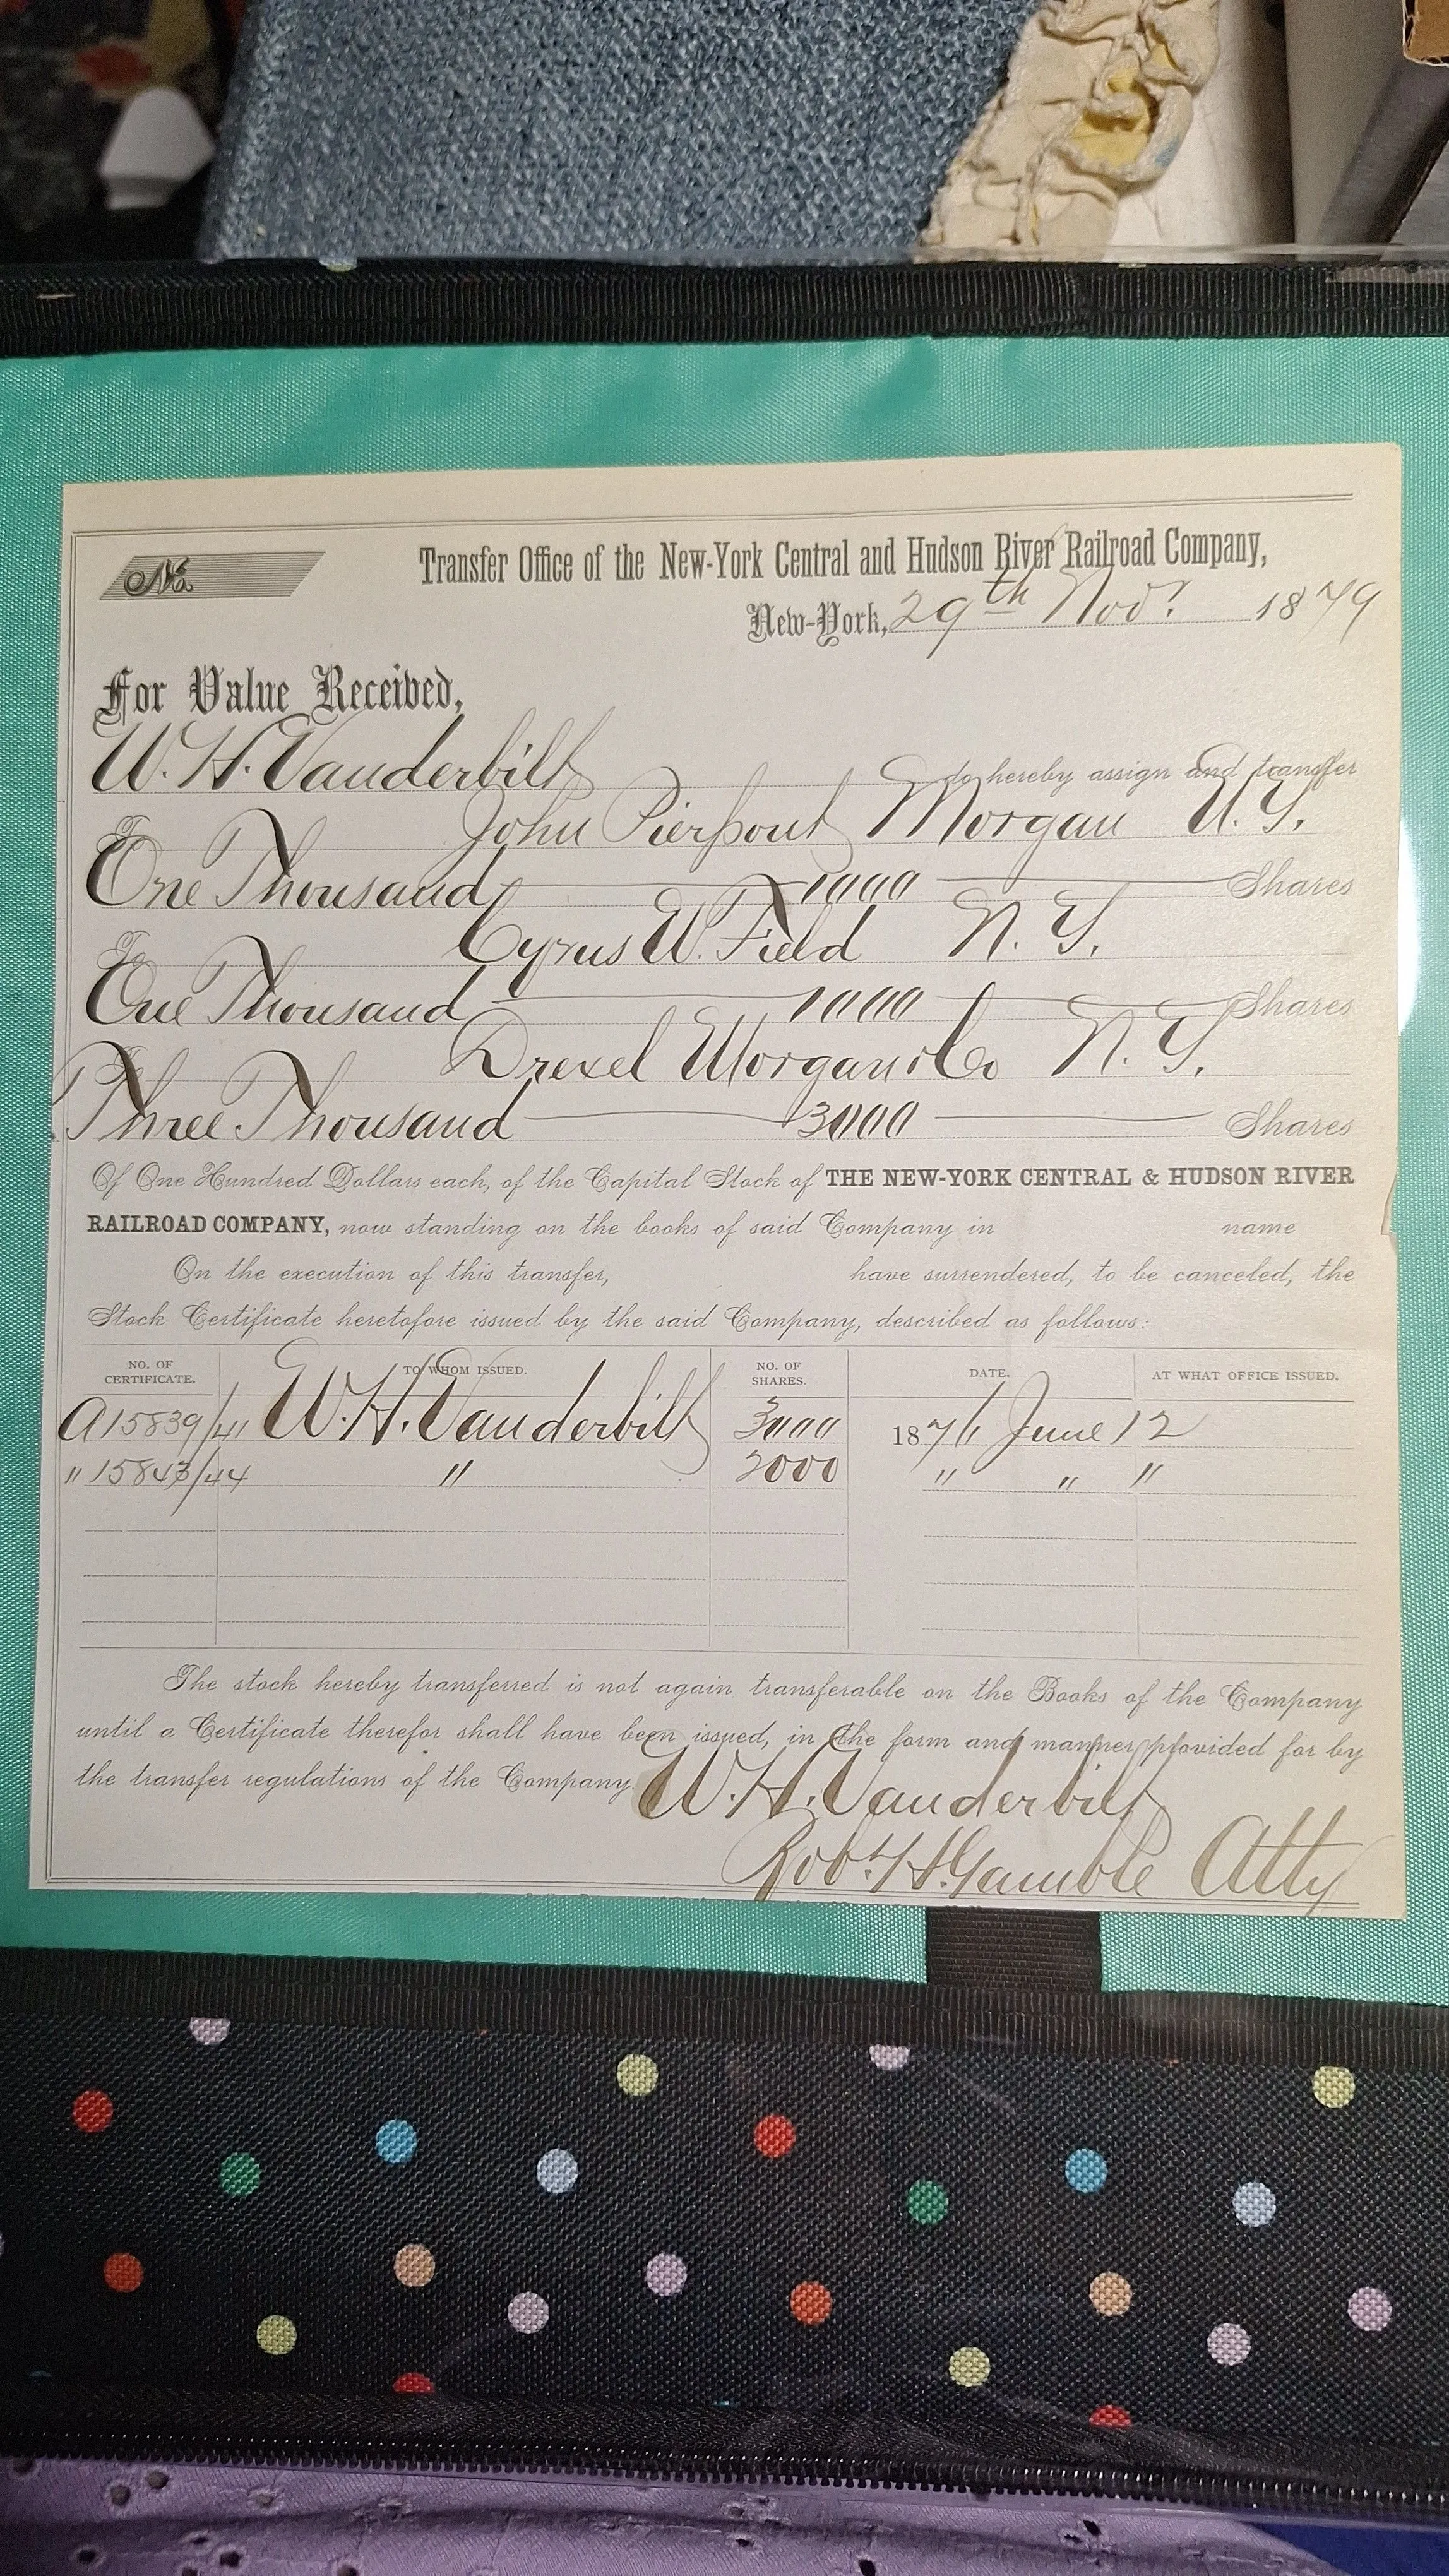 No.
Transfer Office of the New-York Central and Hudson River Railroad Company,
New-York, 29th Nov. 1879
For Value Received,
W. H. Vanderbilt do hereby assign and transfer
To John Pierpont Morgan N. Y.
One Thousand 1000 Shares
To Cyrus W. Field N. Y.
One Thousand 1000 Shares
To Drexel Morgan & Co N. Y.
Three Thousand 3000 Shares
Of One Hundred Dollars each, of the Capital Stock of THE NEW-YORK CENTRAL & HUDSON RIVER
RAILROAD COMPANY, now standing on the books of said Company in name
On the execution of this transfer, have surrendered, to be canceled, the
Stock Certificate heretofore issued by the said Company, described as follows:
NO. OF CERTIFICATE. TO WHOM ISSUED. NO. OF SHARES. DATE. AT WHAT OFFICE ISSUED.
A15839/41 W. H. Vanderbilt 3000 1876 June 12
" 15843/44 " 2000 " " "
The stock hereby transferred is not again transferable on the Books of the Company
until a Certificate therefor shall have been issued, in the form and manner provided for by
the transfer regulations of the Company.
W. H. Vanderbilt
Robt. H. Gamble Atty